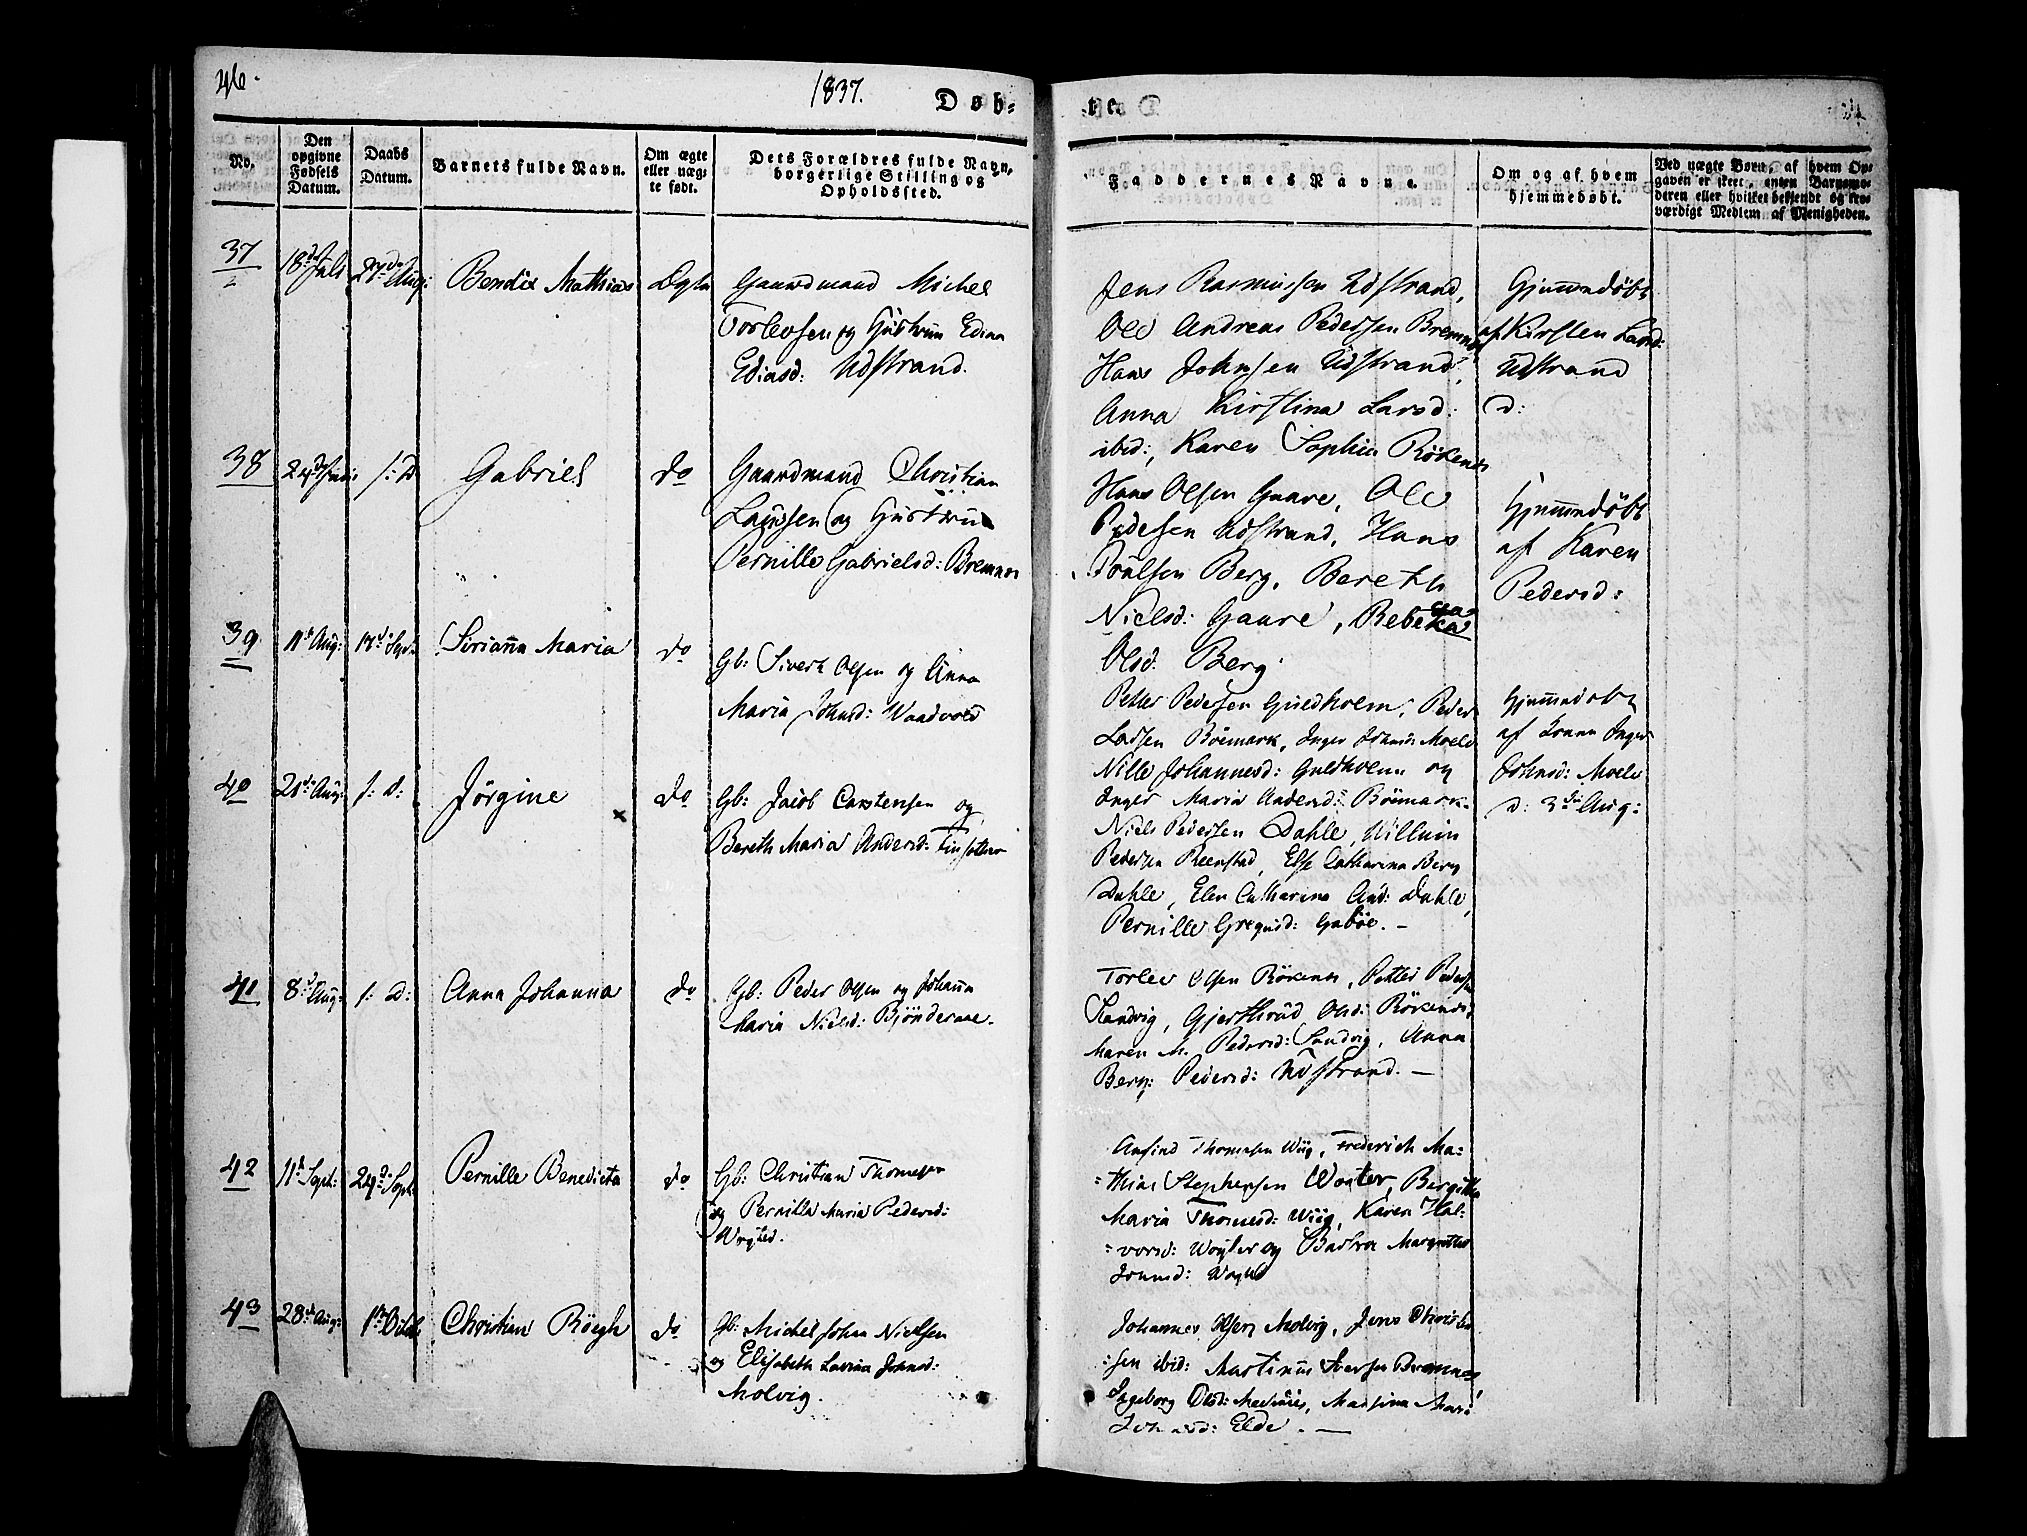 46.
1837.
Døb-
te
No.
Den opgivne Fødsels Datum.
Daabs Datum.
Barnets fulde Navn.
Om ægte eller uægte født.
Dets Forældres fulde Navn, borgerlige Stilling og Opholdssted.
Faddernes Navne.
Om og af hvem hjemmedøbt.
Ved uægte Børn, af hvem Opgaven er skeet, enten Barnemoderen eller hvilket bekjendt og troværdigt Medlem af Menigheden.
37
18de Juli
27de Aug:
Bendix Mathias
Ægte
Gaardmand Michel
Torlevsen og Hustrue Edina
Ediasd: Udstrand.
Jens Rasmussen Udstrand,
Ole Andreas Pedersen Bremnes
Hans Johnsen Udstrand,
Anna Kirstina Larsd:
ibid:, Karen Sophia Rökenes
Gjemmedöbt
af Kirsten Larsd:
Udstrand
d:
38
s: D
Gabriel
do
Gaardmand Christian
og Hustrue
Pernille Gabrielsd: Bremnes
Hans Olsen Gaare, Ole
Pedersen Udstrand, Hans
Poulsen Berg, Bereth
Nielsd: Gaare, Rebekka
Olsd: Berg
Gjemmedöbt
af Karen
Pedersd:
39
11te Aug:
17de Sept:
Sirianna Maria
do
Gb: Sivert Olsen og Anna
Maria Johnsd: Waadvold
Petter Pedersen Guldholm, Peder
Larsen Böemark, Inger Johnsd: Moele
Nille Johannesd: Guldholm og
Inger Maria Andersd: Böemark.
Gjemmedöbt
af Inger
Johnsd: Moele
d: 3die Aug:
40
Aug:
s: d:
Jörgine
do
Gb: Jacob Carstensen og
Bereth Maria Andersd: Finsætter
x
Niels Pedersen Dahle, Willum
Pedersen Reenstad, Else Catharina Berg
Dahle, Elen Catharina And: Dahle,
Pernille Gregusd: Gaböe. -
41
8de Aug:
s: D:
Anna Johanna
do
Gb: Peder Olsen og Johanna
Maria Nielsd: Bjönderaae.
Torlev Olsen Rökenes, Petter Peders:
Sandvig, Gjerthrud Olsd: Rökenes,
Maren M. Pedersd: Sandvig, Anna
Berg: Pedersd: Udstrand. -
42
11te Sept:
24de Sept:
Pernille Benedicta
do
Gb: Christian Thomesen
og Pernilla Maria Pedersd:
Arnfind Thomesen Wiig, Frederich Ma-
-thias Stephensen Wogter, Bergitha
Maria Thomesd: Wiig, Karen Hal-
-vorsd: Wogter og Barbra Margrethe
43
28de Aug:
1te Octb:
Christian Röegh
do
Gb: Michel Johan Nielsen
og Elisabeth Lavina Johnsd:
Molvig.
Johannes Olsen Molvig, Jens Christen
-sen ibid: Martinus Iversen Bremnes,
Ingeborg Olsd: Martina Mari
Johansd: Elde. -